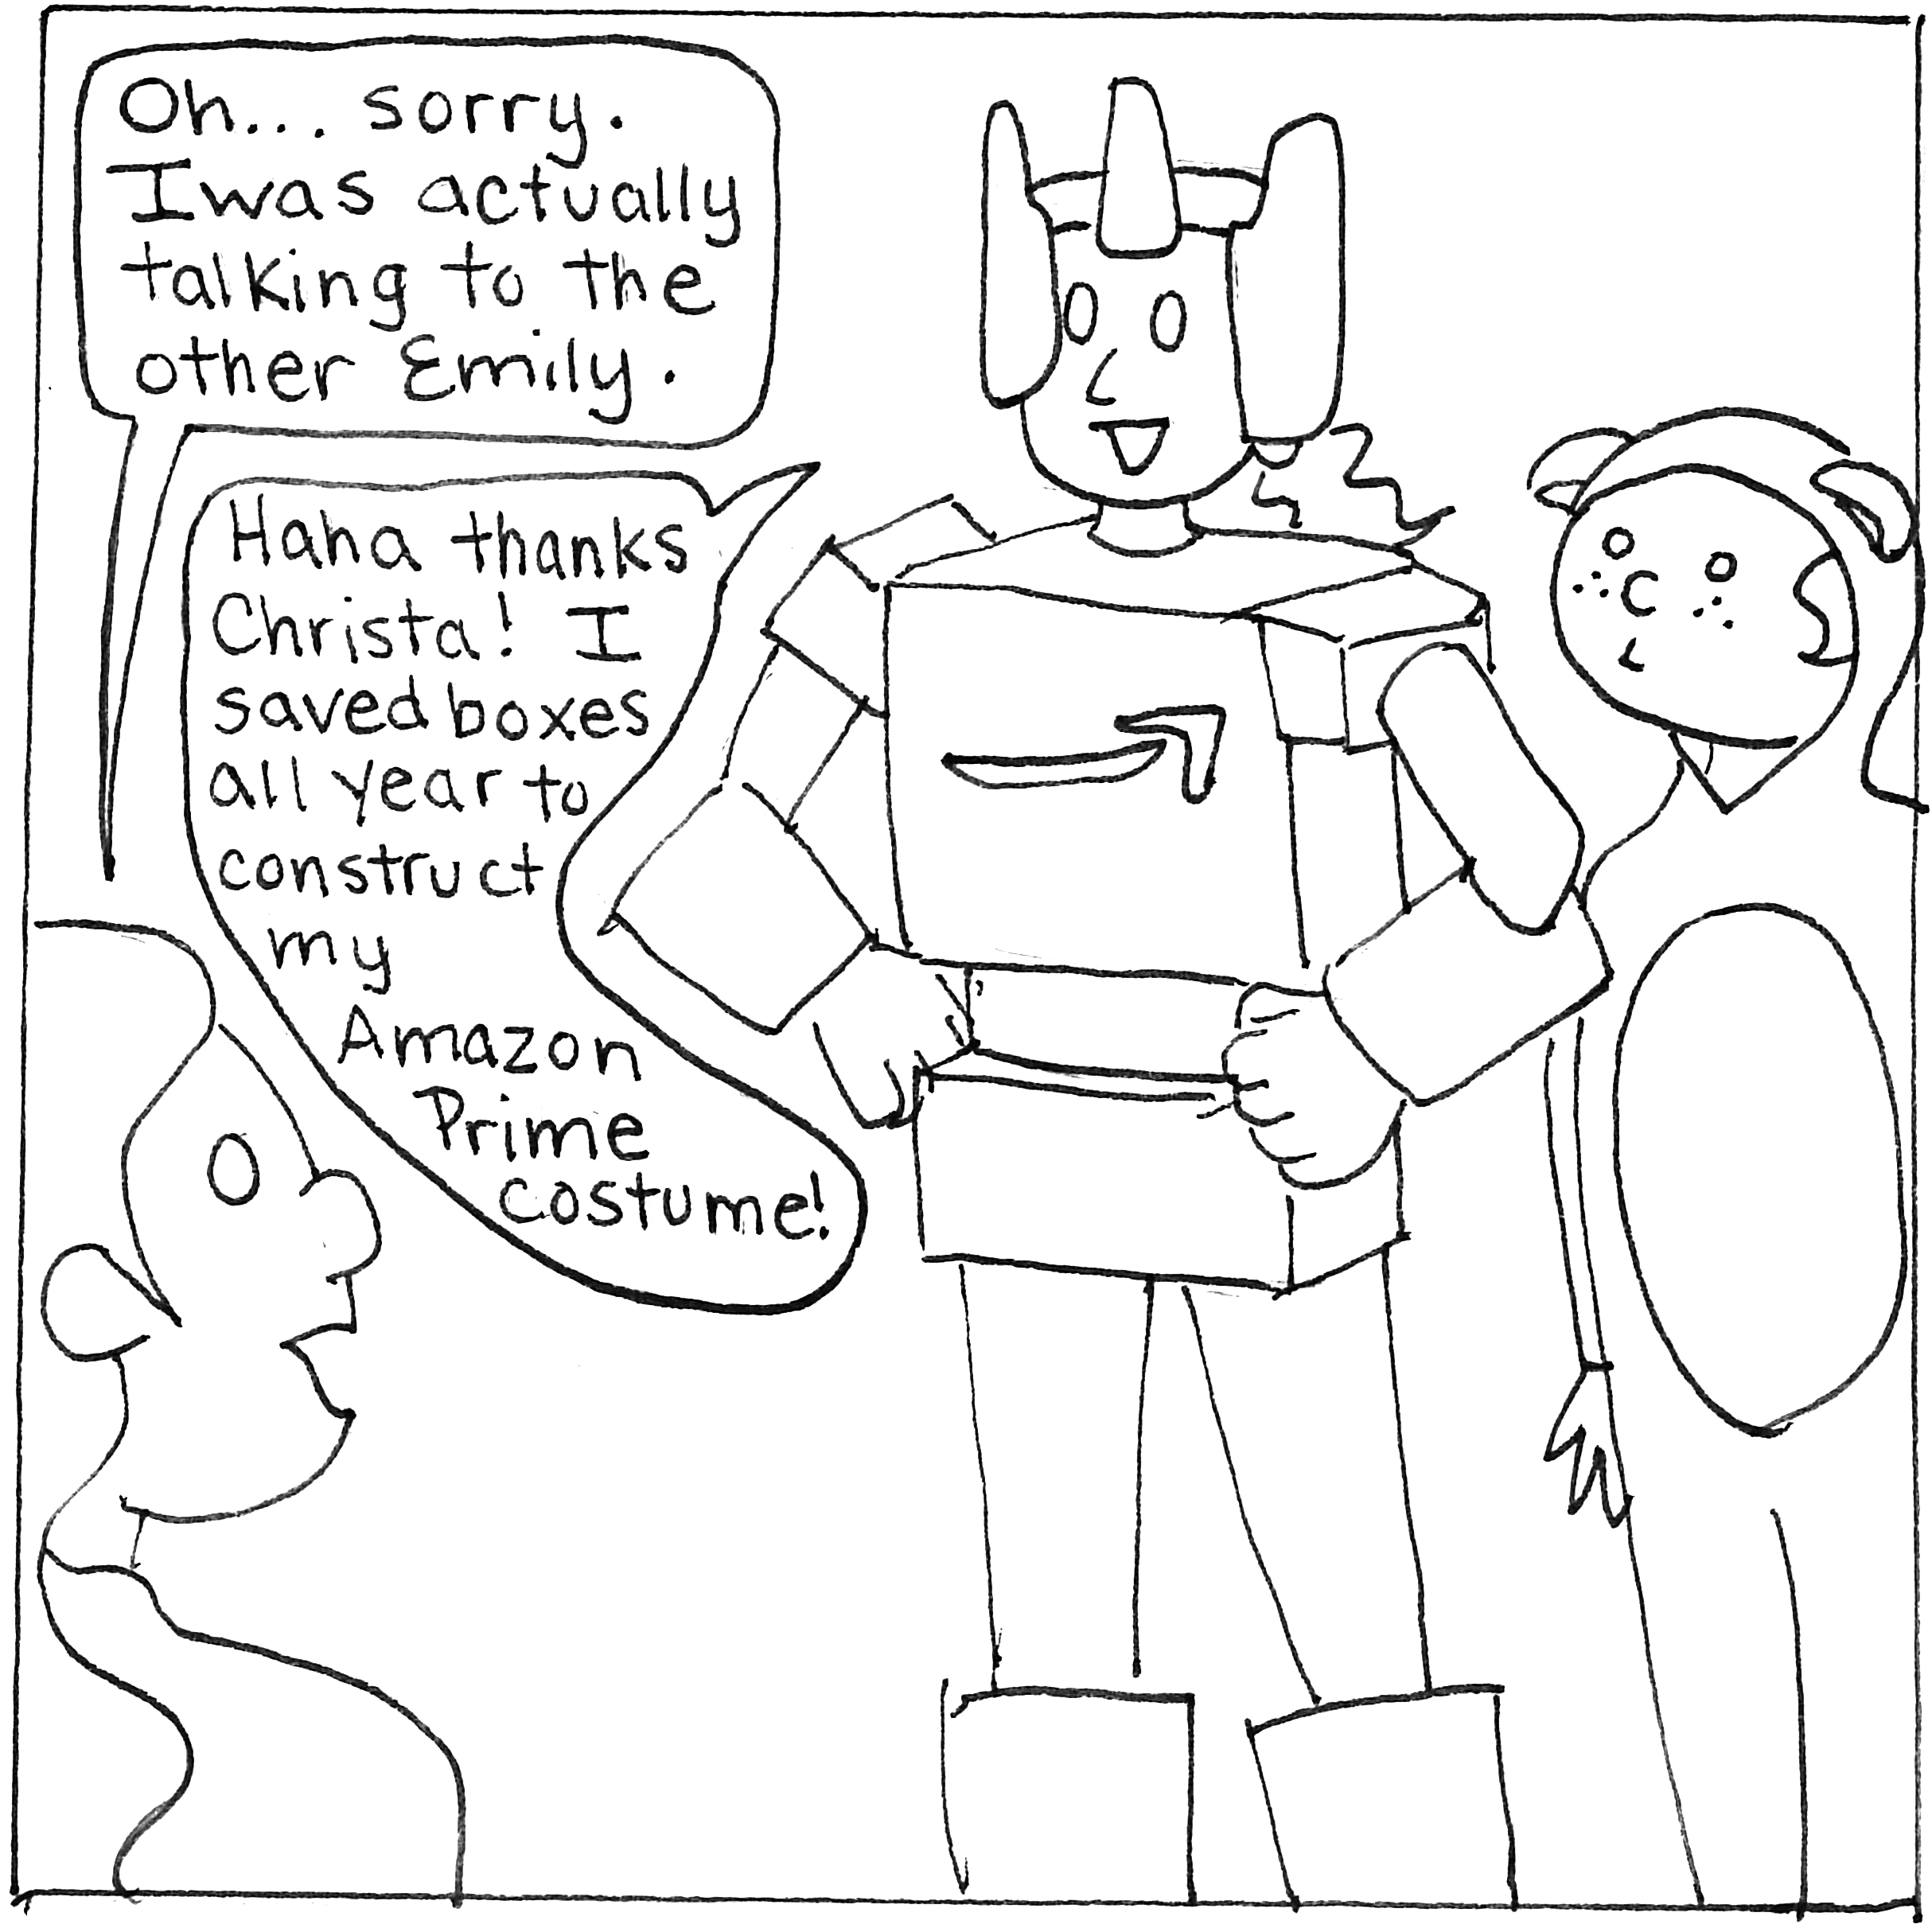 Oh... sorry.
I was actually
talking to the
other Emily.
Haha thanks
Christa! I
saved boxes
all year to
construct
my
Amazon
Prime
costume!